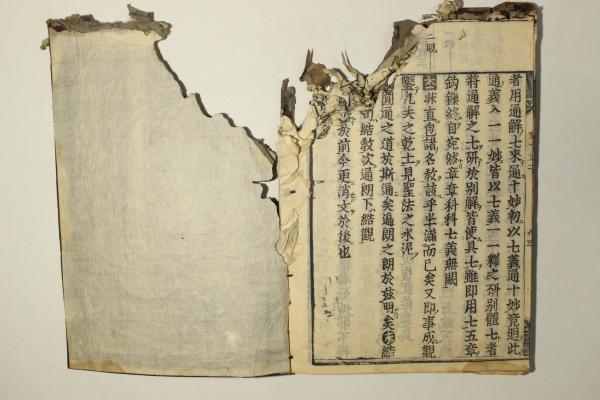 者用通解七來通十妙初以七義通十妙竟迴此
通義入一一妙皆以七義一一釋之研別體七者
將通解之七研於別解皆使具七雖即用七五章
鈎鎖終自宛然章章科科七義無闕
非直包諸名教該乎半滿而已矣又即事成觀
鑿凡夫之乾土見聖法之水泥
圓通之道於斯通矣遍朗之朗於茲明矣次結
結教次通朗下結觀
於前今更消文於後也